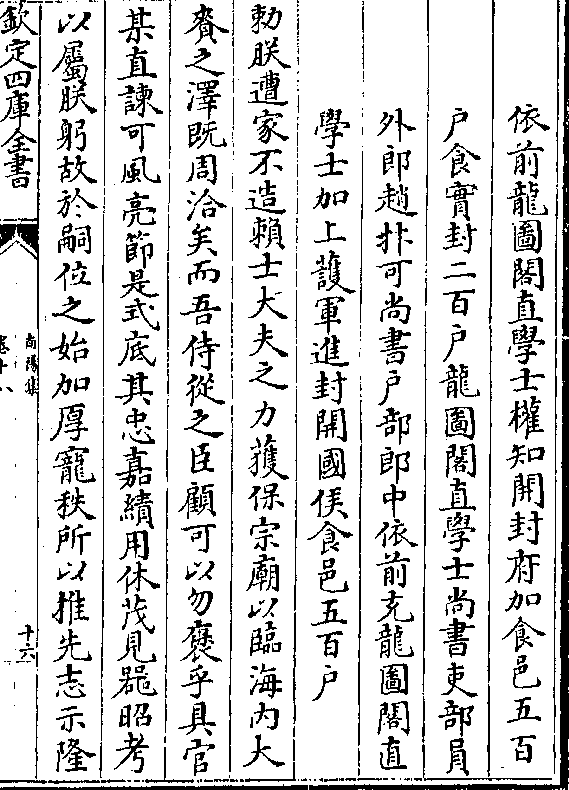 依前龍圖閣直學士權知開封府加食邑五百
户食實封二百户龍圖閣直學士尚書吏部員
外郎趙抃可尚書户部郎中依前充龍圖閣直
學士加上護軍進封開國侯食邑五百户
勅朕遭家不造賴士大夫之力獲保宗廟以臨海内大
賚之澤既周洽矣而吾侍從之臣顧可以勿褒乎具官
某直諫可風亮節是式底其忠嘉績用休茂見器昭考
以屬朕躬故於嗣位之始加厚寵秩所以推先志示隆
欽定四庫全書
南陽集
卷十八
十六